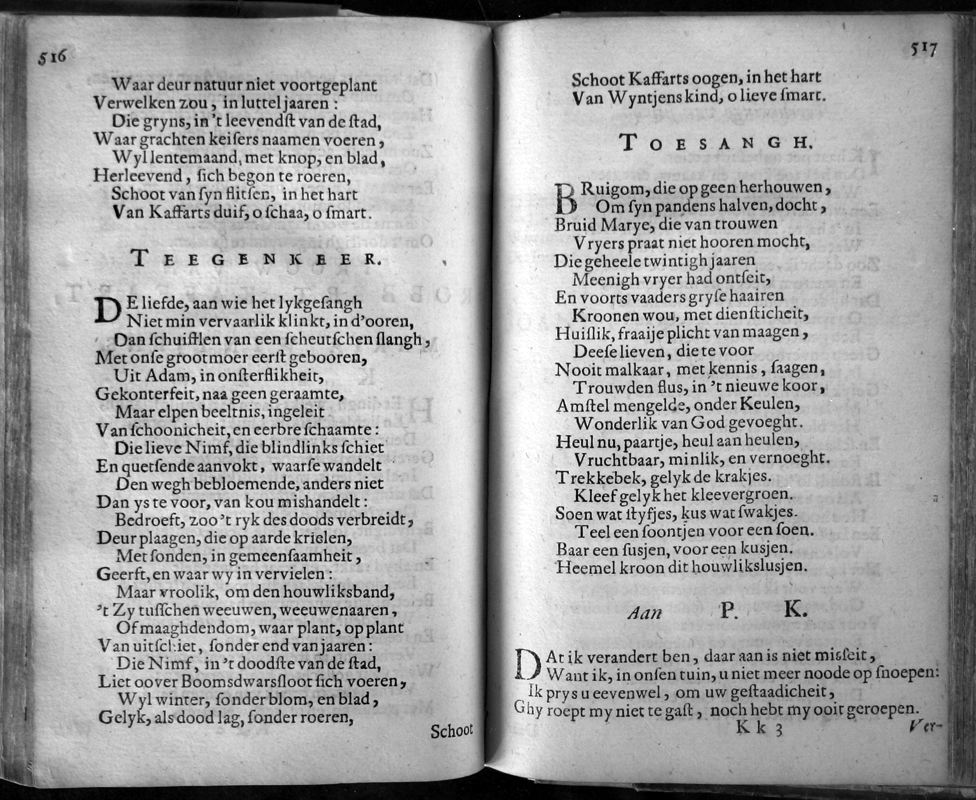 516
Waar deur natuur niet voortgeplant
Verwelken zou, in luttel jaaren:
Die gryns, in 't leevendſt van de ſtad,
Waar grachten keiſers naamen voeren,
Wyl lentemaand, met knop, en blad,
Herleevend, ſich begon te roeren,
Schoot van ſyn flitſen, in het hart
Van Kaffarts duif, o ſchaa, o ſmart.
TEEGENKEER.
DE liefde, aan wie het lykgeſangh
Niet min vervaarlik klinkt, in d'ooren,
Dan ſchuifflen van een ſcheutſchen ſlangh,
Met onſe grootmoer eerſt gebooren,
Uit Adam, in onſterflikheit,
Gekonterfeit, naa geen geraamte,
Maar elpen beeltnis, ingeleit
Van ſchoonicheit, en eerbre ſchaamte:
Die lieve Nimf, die blindlinks ſchiet
En quetſende aanvokt, waarſe wandelt
Den wegh bebloemende, anders niet
Dan ys te voor, van kou mishandelt:
Bedroeft, zoo 't ryk des doods verbreidt,
Deur plaagen, die op aarde krielen,
Met ſonden, in gemeenſaamheit,
Geerft, en waar wy in vervielen:
Maar vroolik, om den houwliksband,
't Zy tuſſchen weeuwen, weeuwenaaren,
Of maaghdendom, waar plant, op plant
Van uitſchiet, ſonder end van jaaren:
Die Nimf, in 't doodſte van de ſtad,
Liet oover Boomsdwarsſloot ſich voeren,
Wyl winter, ſonder blom, en blad,
Gelyk, als dood lag, ſonder roeren,
Schoot
517
Schoot Kaffarts oogen, in het hart
Van Wyntjens kind, o lieve ſmart.
TOESANGH.
BRuigom, die op geen herhouwen,
Om ſyn pandens halven, docht,
Bruid Marye, die van trouwen
Vryers praat niet hooren mocht,
Die geheele twintigh jaaren
Meenigh vryer had ontſeit,
En voorts vaaders gryſe haairen
Kroonen wou, met dienſticheit,
Huiſlik, fraaije plicht van maagen,
Deeſe lieven, die te voor
Nooit malkaar, met kennis, ſaagen,
Trouwden flus, in 't nieuwe koor,
Amſtel mengelde, onder Keulen,
Wonderlik van God gevoeght.
Heul nu, paartje, heul aan heulen,
Vruchtbaar, minlik, en vernoeght.
Trekkebek, gelyk de krakjes.
Kleef gelyk het kleevergroen.
Soen wat ſtyfjes, kus wat ſwakjes.
Teel een ſoontjen voor een ſoen.
Baar een ſusjen, voor een kusjen.
Heemel kroon dit houwlikslusjen.
Aan P. K.
DAt ik verandert ben, daar aan is niet misſeit,
Want ik, in onſen tuin, u niet meer noode op ſnoepen:
Ik prys u eevenwel, om uw geſtaadicheit,
Ghy roept my niet te gaſt, noch hebt my ooit geroepen.
Kk 3
Ver-